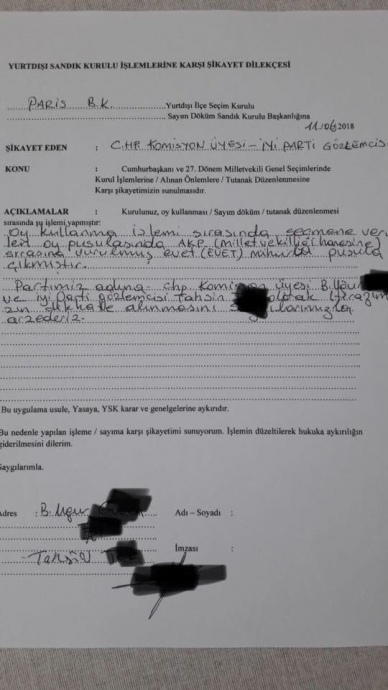 YURTDIŞI SANDIK KURULU İŞLEMLERİNE KARŞI ŞİKAYET DİLEKÇESİ
PARİS B.K. Yurtdışı İlçe Seçim Kurulu
Sayım Döküm Sandık Kurulu Başkanlığına
11/06/2018
ŞİKAYET EDEN : CHP KOMİSYON ÜYESİ - İYİ PARTİ GÖZLEMCİSİ
KONU : Cumhurbaşkanı ve 27. Dönem Milletvekili Genel Seçimlerinde
Kurul İşlemlerine / Alınan Önlemlere / Tutanak Düzenlenmesine
Karşı şikayetimizin sunulmasıdır.
AÇIKLAMALAR : Kurulunuz, oy kullanması / Sayım döküm / tutanak düzenlenmesi
sırasında şu işlemi yapmıştır:
Oy kullanma işlemi sırasında seçmene ver
len oy pusulasında AKP (milletvekilliği hanesine)
vurulmuş evet (EVET) mühürlü pusula
çıkmıştır.
Partimiz adına chp komisyon üyesi B.
ve iyi Parti gözlemcisi Tahsin olarak
dikkate alınmasını
arzederiz.
Bu uygulama usule, Yasaya, YSK karar ve genelgelerine aykırıdır.
Bu nedenle yapılan işleme / sayıma karşı şikayetimi sunuyorum. İşlemin düzeltilerek hukuka aykırılığın
giderilmesini dilerim.
Saygılarımla.
Adres : B. Uğur Adı – Soyadı :
Tahsin İmzası :